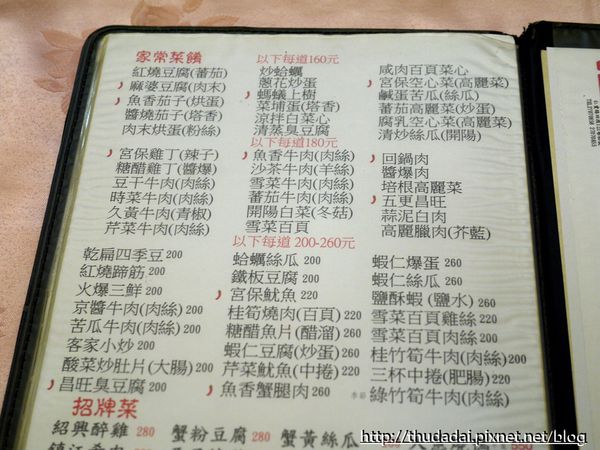 家常菜餚 以下每道160元
紅燒豆腐(蕃茄) 炒蛤蠣 咸肉百頁菜心
麻婆豆腐(肉末) 蔥花炒蛋 宮保空心菜(高麗菜)
魚香茄子(烘蛋) 螞蟻上樹 鹹蛋苦瓜(絲瓜)
醬燒茄子(塔香) 菜埔蛋(塔香) 蕃茄高麗菜(炒蛋)
肉末烘蛋(粉絲) 涼拌白菜心 腐乳空心菜(高麗菜)
清蒸臭豆腐 清炒絲瓜(開陽)
以下每道180元
宮保雞丁(辣子) 魚香牛肉(肉絲) 回鍋肉
糖醋雞丁(醬爆) 沙茶牛肉(羊絲) 醬爆肉
豆干牛肉(肉絲) 雪菜牛肉(肉絲) 培根高麗菜
時菜牛肉(肉絲) 蕃茄牛肉(肉絲) 五更昌旺
久黃牛肉(青椒) 開陽白菜(冬菇) 蒜泥白肉
芹菜牛肉(肉絲) 雪菜百頁 高麗臘肉(芥藍)
以下每道 200-260元
乾扁四季豆 200 蛤蠣絲瓜 200 蝦仁爆蛋 260
紅燒蹄筋 200 鐵板豆腐 200 蝦仁絲瓜 260
火爆三鮮 200 宮保魷魚 220 鹽酥蝦(鹽水) 260
京醬牛肉(肉絲) 200 桂筍燒肉(百頁) 220 雪菜百頁雞絲 220
苦瓜牛肉(肉絲) 200 糖醋魚片(醋溜) 260 雪菜百頁肉絲 200
客家小炒 200 蝦仁豆腐(炒蛋) 260 桂竹筍牛肉(肉絲) 200
酸菜炒肚片(大腸) 200 芹菜魷魚(中捲) 220 三杯中捲(肥腸) 220
昌旺臭豆腐 200 魚香蟹腿肉 260 季節 綠竹筍牛肉(肉絲)
招牌菜
紹興醉雞 280 蟹粉豆腐 280 蟹黃絲瓜
http://thudadai.pixnet.net/blog